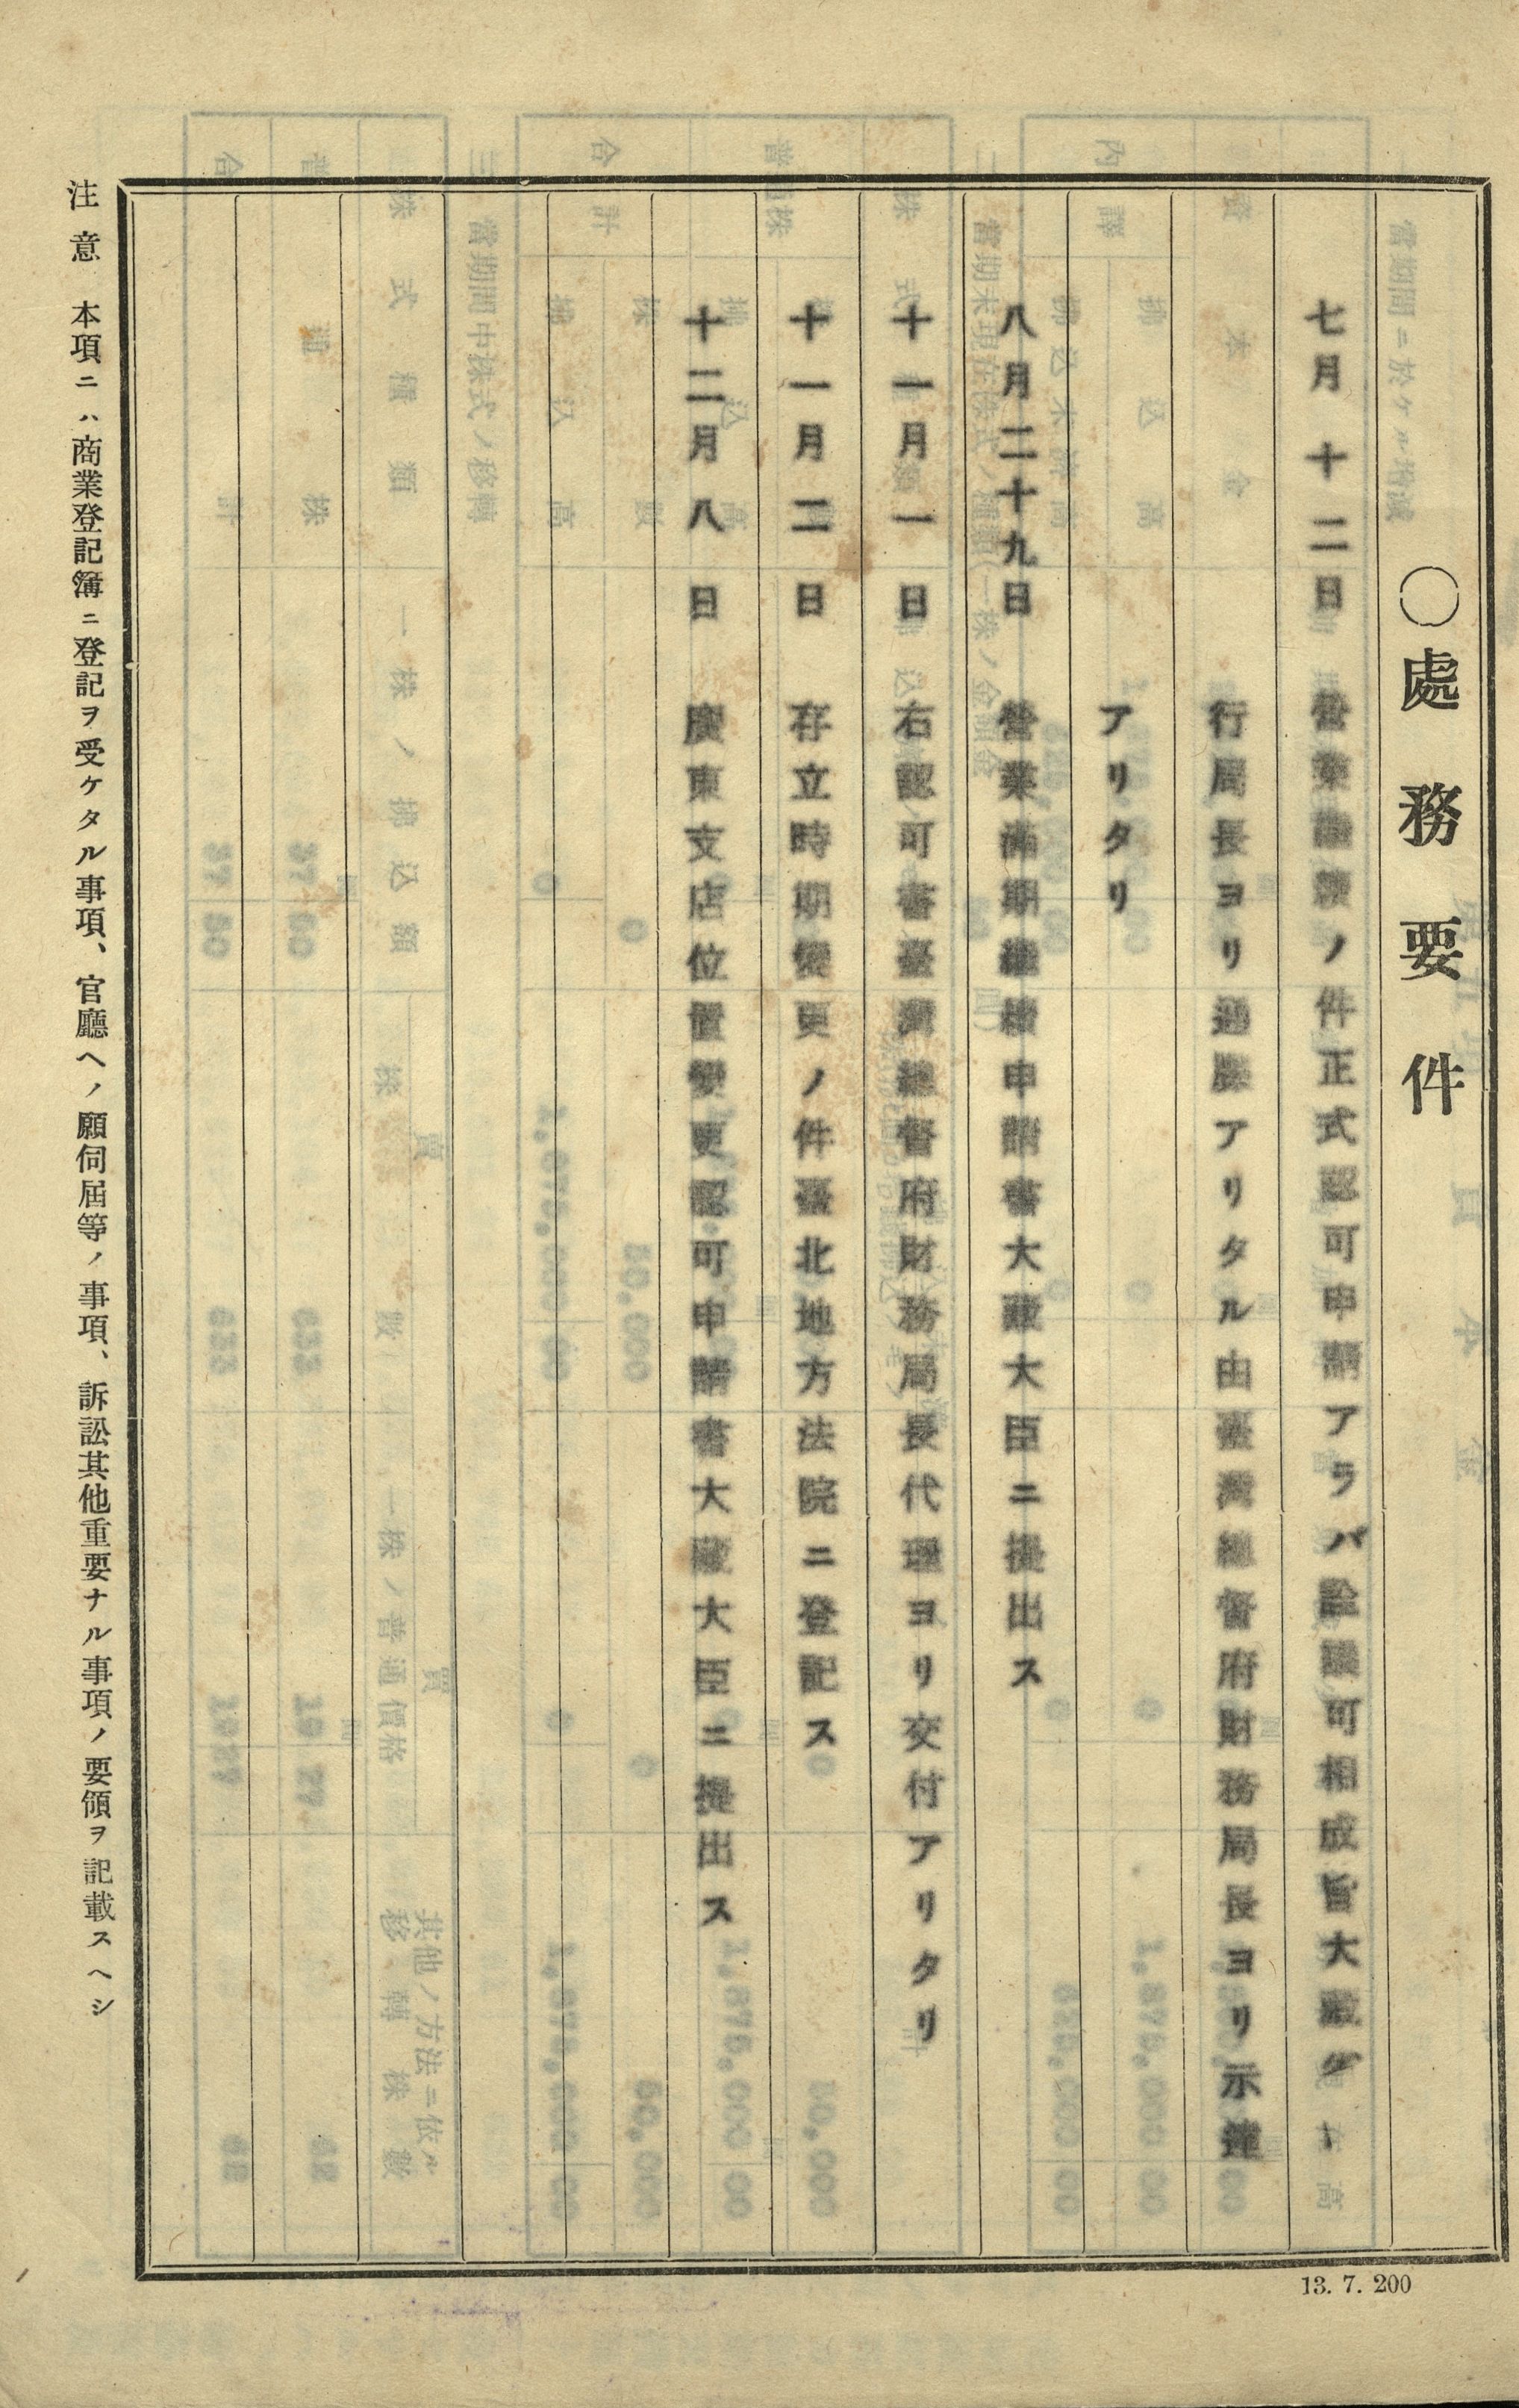 〇處務要件
七月十二日 營業繼續ノ件正式認可申請アラバ詮議可相成旨大藏省銀
行局長ヨリ通牒アリタル由臺灣總督府財務局長ヨリ示達
アリタリ
八月二十九日 營業滿期繼續申請書大藏大臣ニ提出ス
十一月一日 右認可書臺灣總督府財務局長代理ヨリ交付アリタリ
十一月二日 存立時期變更ノ件臺北地方法院ニ登記ス
十二月八日 廣東支店位置變更認可申請書大藏大臣ニ提出ス
注意 本項ニハ商業登記簿ニ登記ヲ受ケタル事項、官廳ヘノ願伺屆等ノ事項、訴訟其他重要ナル事項ノ要領ヲ記載スヘシ
13. 7. 200